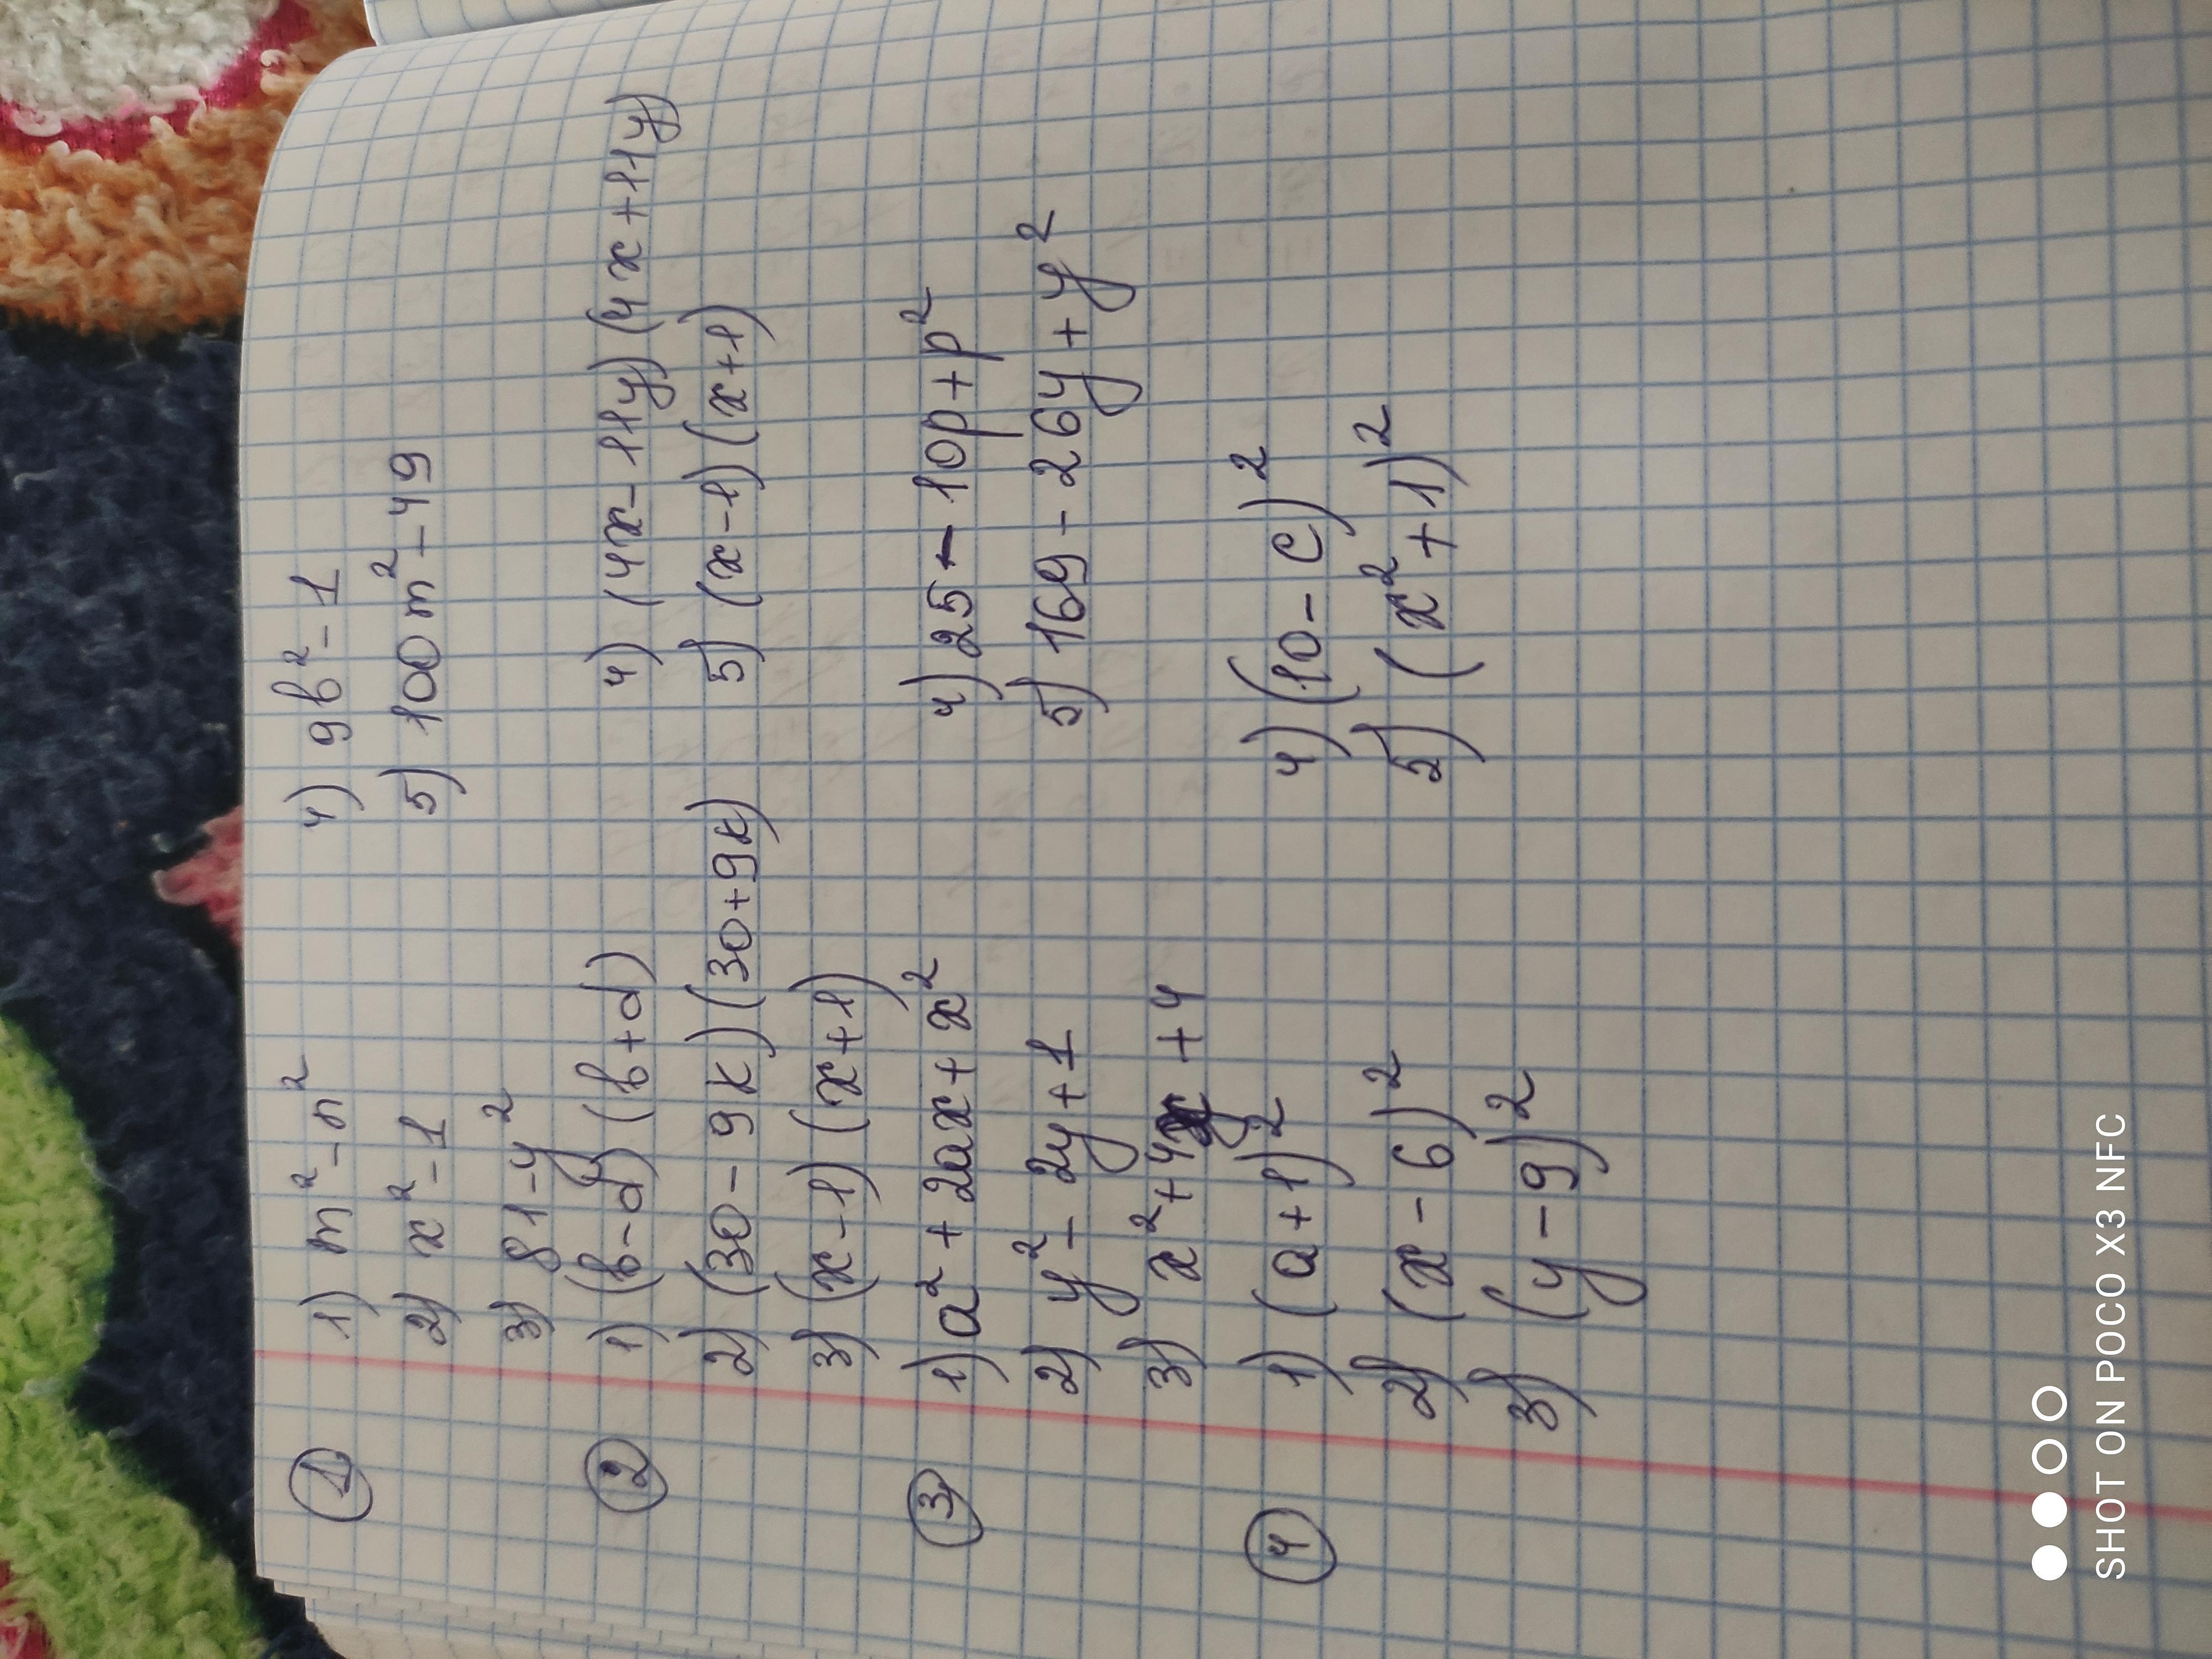 ① 1) m² - n² 4) 9b² - 1
2) x² - 1 5) 100m² - 49
3) 81 - y²
② 1) (b - d) (b + d) 4) (4x - 11y) (4x + 11y)
2) (30 - 9k) (30 + 9k) 5) (x - 1) (x + 1)
3) (x - 1) (x + 1)
③ 1) a² + 2ax + x² 4) 25 - 10p + p²
2) y² - 2y + 1 5) 169 - 26y + y²
3) x² + 4x + 4
④ 1) (a + 1)² 4) (10 - c)²
2) (x - 6)² 5) (x² + 1)²
3) (y - 9)²
SHOT ON POCO X3 NFC